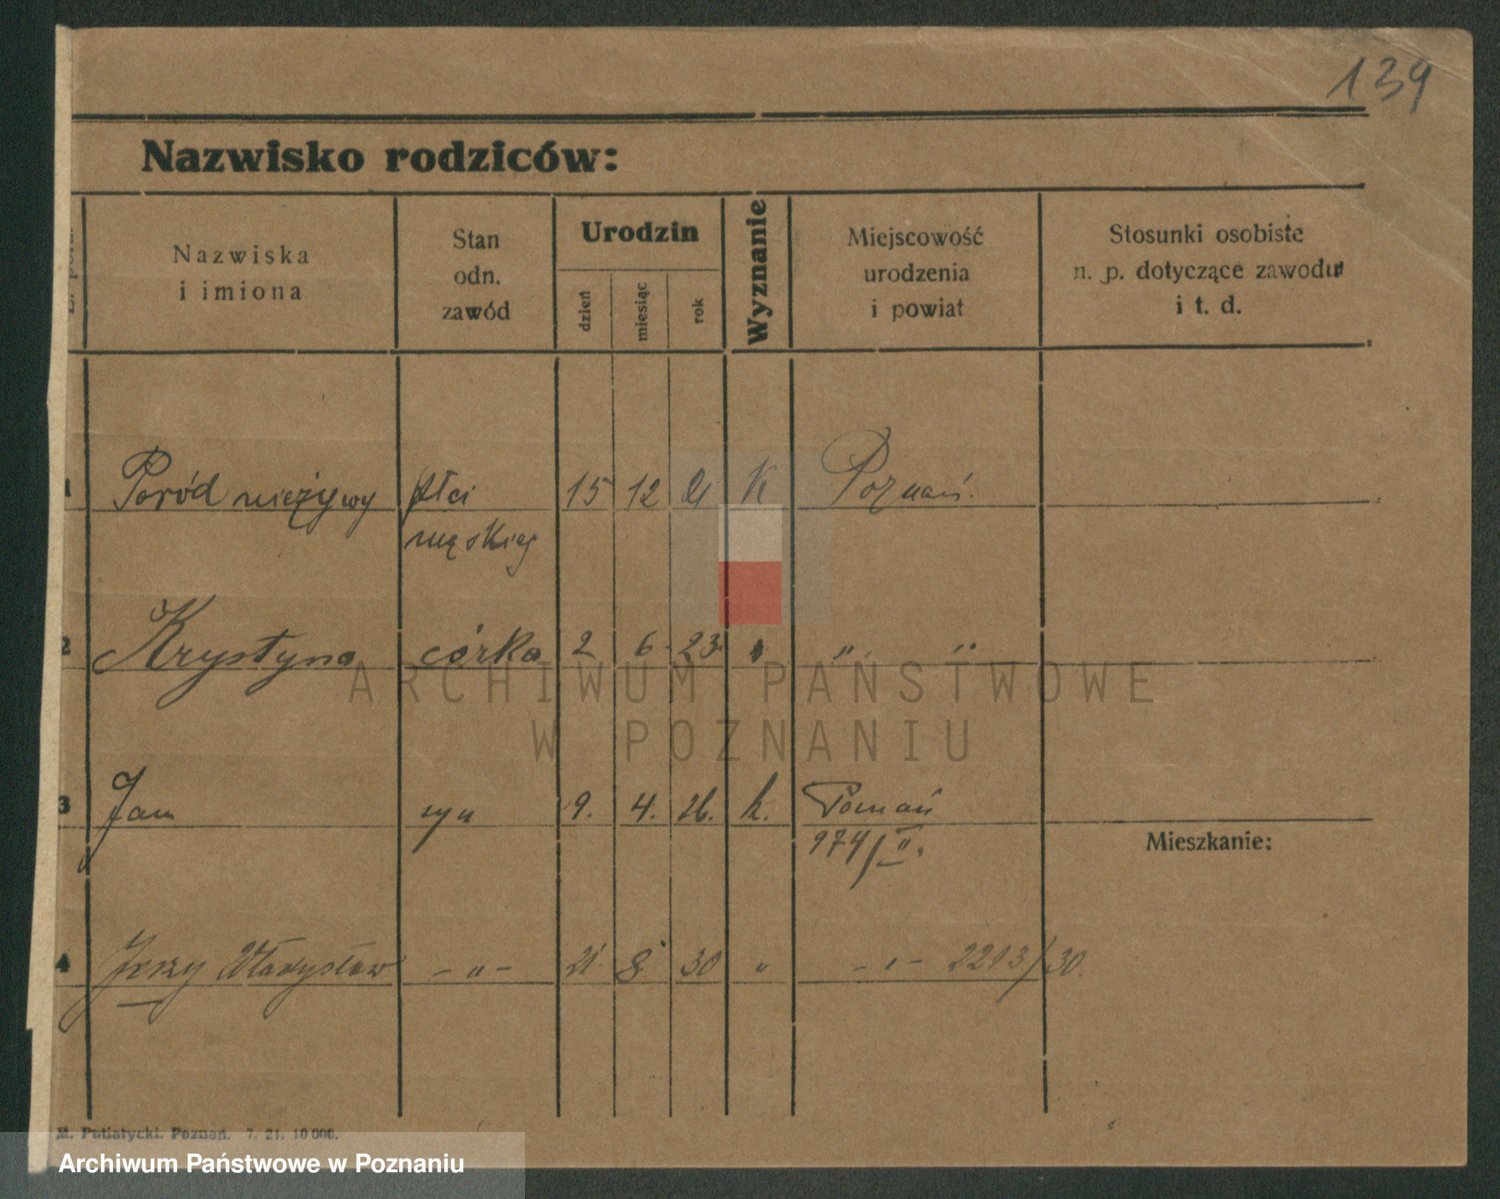 139
Nazwisko rodziców:
Nazwiska
i imiona
Stan
odn.
zawód
Urodzin
dzień
miesiąc
rok
Wyznanie
Miejscowość
urodzenia
i powiat
Stosunki osobiste
n. p. dotyczące zawodu
i t. d.
1 Poród nieżywy płci 15 12 21 K Poznań.
męskiej
2 Krystyna córka 2 6. 23. " " "
ARCHIWUM PAŃSTWOWE
W POZNANIU
3 Jan syn 9. 4. 26. k. Poznań
974/II.
Mieszkanie:
4 Jerzy Władysław - " - 21 8 30 " - " - 2213/30.
M. Putiatycki. Poznań. 7. 21. 10 000.
Archiwum Państwowe w Poznaniu